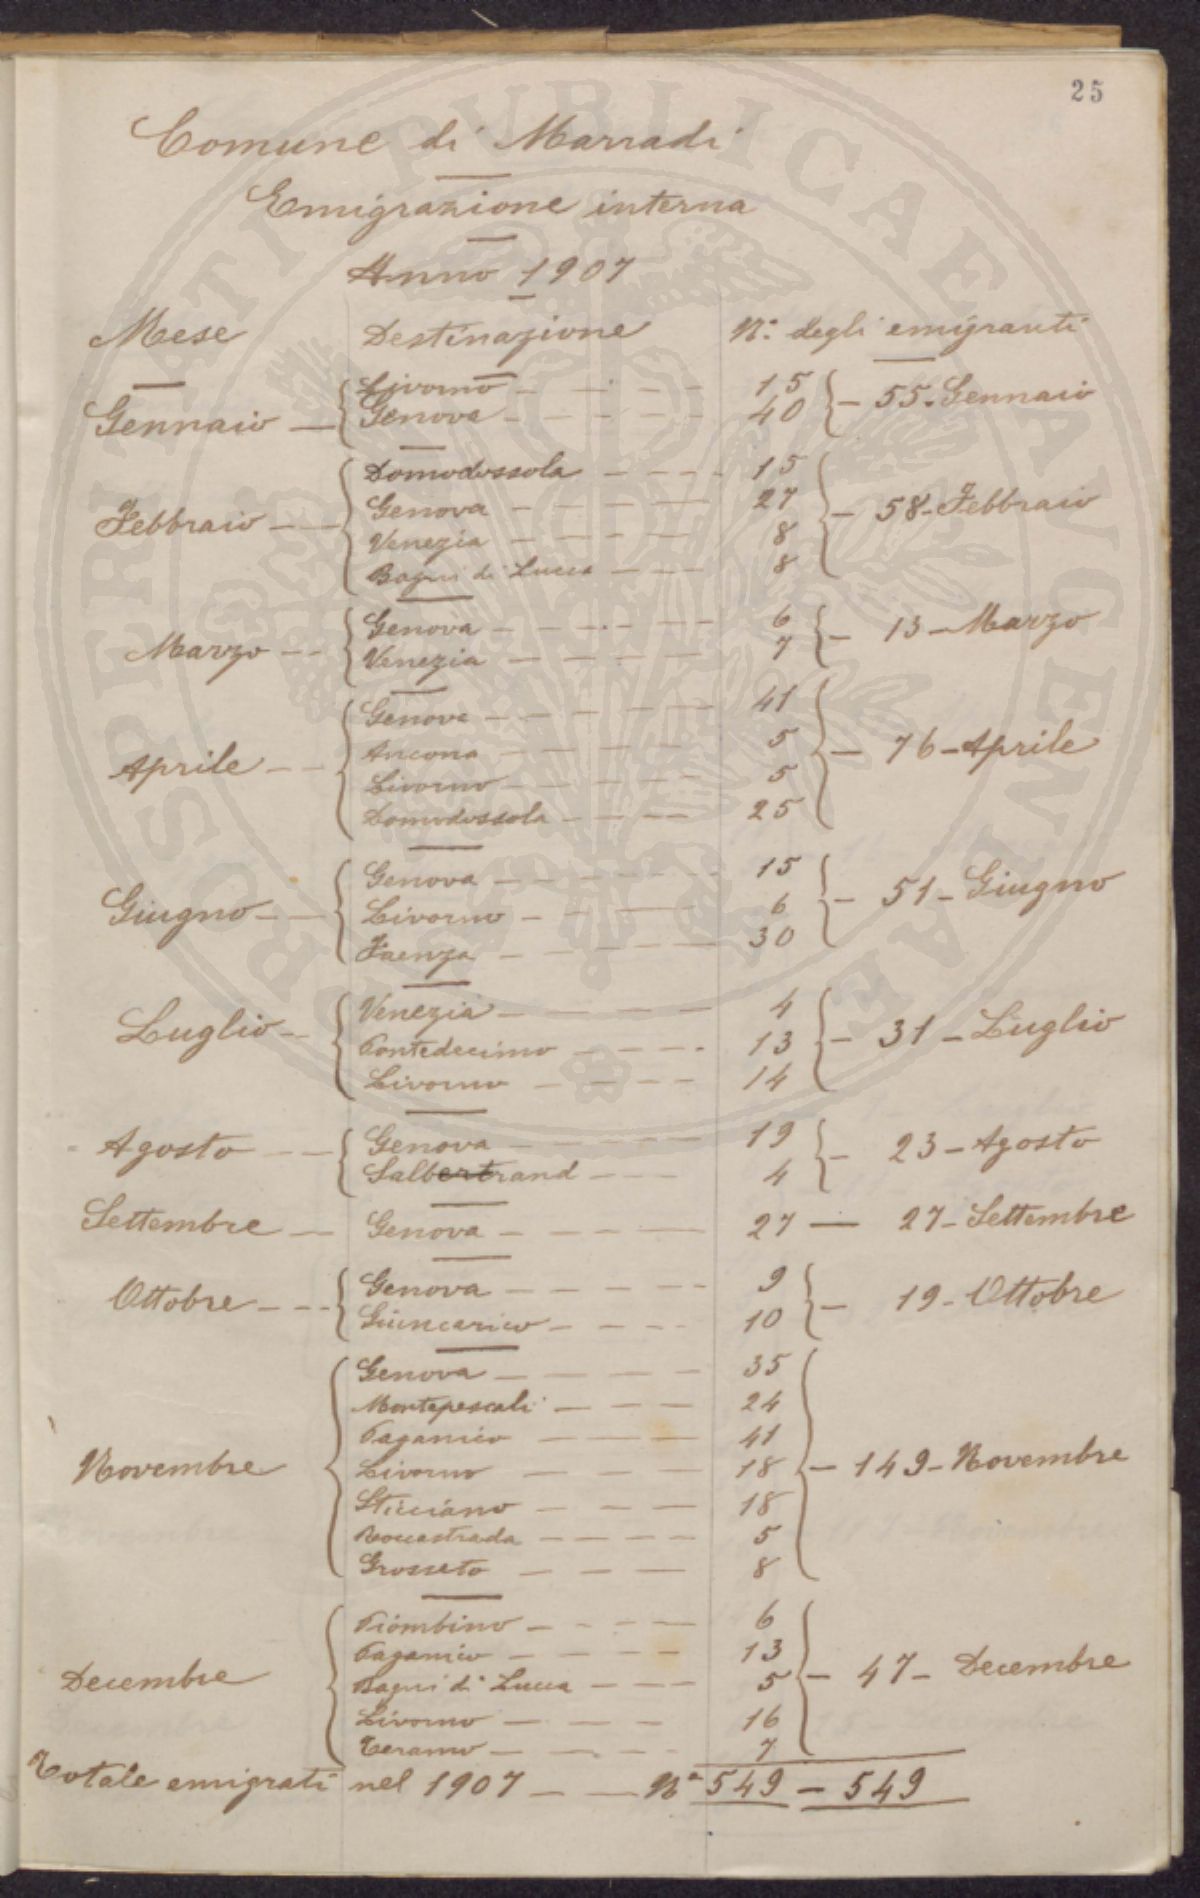 25
Comune di Marradi
Emigrazione interna
Anno 1907
Mese Destinazione N.° degli emigranti
Livorno 15
Gennaio Genova 40 55. Gennaio
Domodossola 15
Febbraio Genova 27 58 - Febbraio
Venezia 8
Bagni di Lucca 8
Marzo Genova 6 13 - Marzo
Venezia 7
Genova 41
Aprile Ancona 5 76 - Aprile
Livorno 5
Domodossola 25
Genova 15
Giugno Livorno 6 51 - Giugno
Faenza 30
Venezia 4
Luglio Pontedecimo 13 31 - Luglio
Livorno 14
Agosto Genova 19 23 - Agosto
Salbertrand 4
Settembre Genova 27 — 27 - Settembre
Ottobre Genova 9 19 - Ottobre
Giuncarico 10
Genova 35
Montepescali 24
Paganico 41
Novembre Livorno 18 149 - Novembre
Sticciano 18
Roccastrada 5
Grosseto 8
Piombino 6
Paganico 13
Decembre Bagni di Lucca 5 47 - Decembre
Livorno 16
Teramo 7
Totale emigrati nel 1907 N° 549 — 549
PROSPERITATI PUBLICAE AVGENDAE